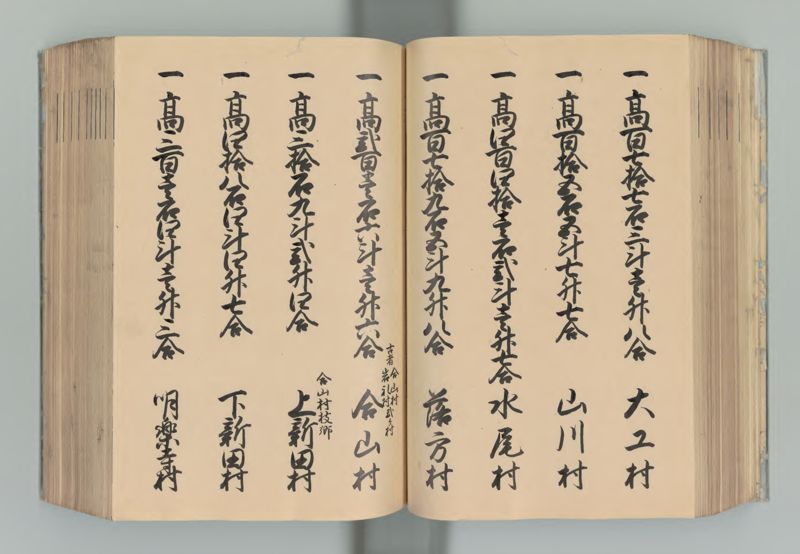 一 高百七拾七石三斗壱升八合 大工村
一 高百拾五石五斗七升七合 山川村
一 高四百四拾壱石弐斗壱升七合 水尾村
一 高百七拾九石五斗九升八合 落方村
一 高弐百壱石六斗壱升六合 合山村
古者 合山村
岩礼村 弐ヶ村
一 高三拾石九斗弐升四合 上新田村
合山村枝郷
一 高四拾八石四斗四升七合 下新田村
一 高三百壱石四斗壱升三合 明楽寺村